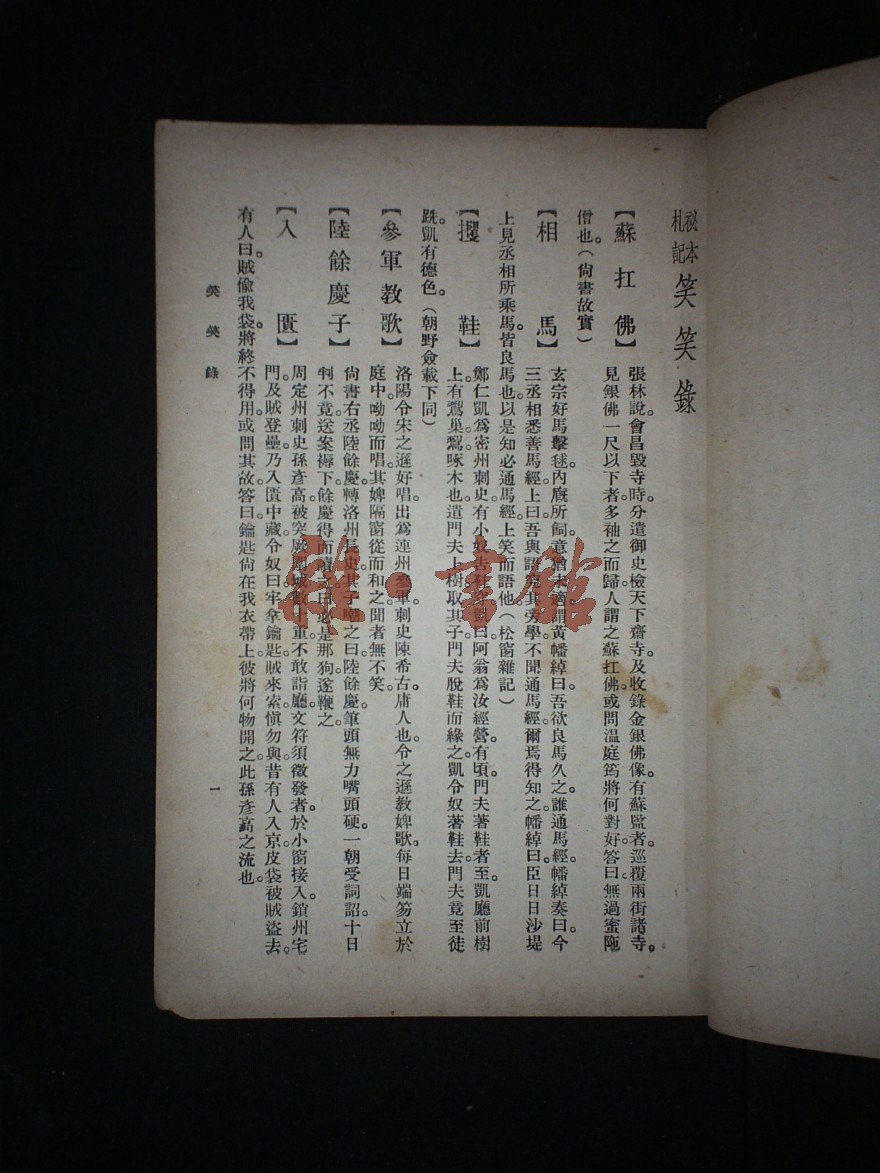 秘本札記 笑笑錄
【蘇扛佛】張林說會昌毀寺時。分遣御史檢天下齋寺。及收錄金銀佛像。有蘇監者。巡覆兩街諸寺。
見銀佛一尺以下者。多袖之而歸。人謂之蘇扛佛。或問温庭筠將何對好。答曰。無過蜜陁
僧也。（尙書故實）
【相馬】玄宗好馬擊毬。內廐所飼。意猶未適。謂黃幡綽曰。吾欲良馬久之。誰通馬經。幡綽奏曰。今
三丞相悉善馬經。上曰。吾與語究其旁學。不聞通馬經。爾焉得知之。幡綽曰。臣日日沙堤
上見丞相所乘馬皆良馬也。以是知必通馬經。上笑而語他（松窗雜記）
【攫鞋】鄭仁凱爲密州刺史。有小奴告鞋穿。凱曰。阿翁爲汝經營。有頃。門夫著鞋者至。凱廳前樹
上。有鴷巢。鴷啄木也。遣門夫上樹取其子。門夫脫鞋而緣之。凱令奴著鞋去。門夫竟至徒
跣。凱有德色。（朝野僉載下同）
【參軍教歌】洛陽令宋之遜好唱。出爲連州參軍。刺史陳希古。庸人也。令之遜敎婢歌。每日端笏立於
庭中。呦呦而唱。其婢隔窗從而和之。聞者無不笑。
【陸餘慶子】尙書右丞陸餘慶。轉洛州長史。其子嘲之曰。陸餘慶。筆頭無力嘴頭硬。一朝受詞詔。十日
判不竟。送案褥下。餘慶得而讀之曰。必是那狗。遂鞭之。
【入匱】周定州刺史孫彥高。被突厥圍城數十重。不敢詣廳。文符須徵發者。於小窗接入。鎖州宅
門。及賊登壘。乃入匱中藏。令奴曰。牢拿鑰匙。賊來索愼勿與。昔有人入京。皮袋被賊盜去。
有人曰。賊偷我袋。將終不得用。或問其故。答曰。鑰匙尙在我衣帶上。彼將何物開之。此孫彥高之流也。
笑笑錄
一
雅·書館